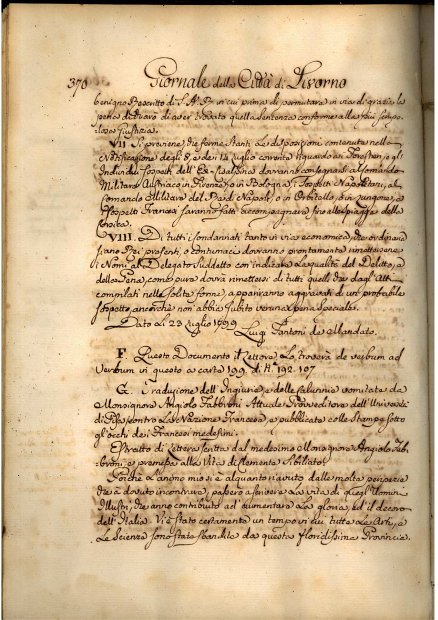 370 Giornale della Città di Livorno
benigno Rescritto di S. A. R. in cui prima di permutare in via di grazia la
pena dichiarò di aver trovato quella Sentenza conforme alla più
Giustizia.
VII Si previene che ferme stanti le disposizioni contenute nella
Notificazione degli 8, e dei 12 luglio corrente riguardo ai Forestieri gli
Individui sospetti dell' Ex-Cisalpina dovranno consegnarsi al Comando
Militare Austriaco in Firenze, o in Bologna, i Sospetti Napoletani, al
Comando Militare del Re di Napoli, o in Orbitello, o in Longone, e
i Sospetti Francesi saranno fatti accompagnare fino alle spiagge della
VIII. Di tutti i Condannati tanto in via economica, che ordinaria
siano Rei presenti, o contumaci dovranno prontamente rimettersene
i Nomi al Delegato Suddetto con indicare la qualità del Delitto, e
della Pena, come pure dovrà rimettersi di tutti quelli che dagli Atti
compilati nelle solite forme, appariranno aggravati di un probabile
sospetto, ancorchè non abbia subito veruna pena Speciale.
Dato Li 23 Luglio 1799 Luigi Fantoni de Mandato.
F. Questo Documento il Lettore Lo troverà de verbum ad
Verbum in questo a carta 199. di N.° 192. 107
G. Traduzione dell' Ingiurie, e delle calunnie vomitate da
Monsignore Angiolo Fabbroni Attuale Provveditore dell' Università
di Pisa contro La Nazione Francese, e pubblicate colle Stampe sotto
gl' occhi dei Francesi medesimi.
Estratto di Lettera scritta dal medesimo Monsignore Angiolo Fab-
broni, e premessa alla Vita di Clemente Sibiliato
Poichè L'animo mio si è alquanto riavuto dalle molte peripezie
che à dovuto incontrare, passerò a scrivere La vita di quegl' Uomini
Illustri, che anno contribuito ad aumentare La gloria, ed il decoro
dell' Italia. Vi è stato certamente un tempo in cui tutte Le Arti, e
Le Scienze sono state sbandite da questa floridissima Provincia.